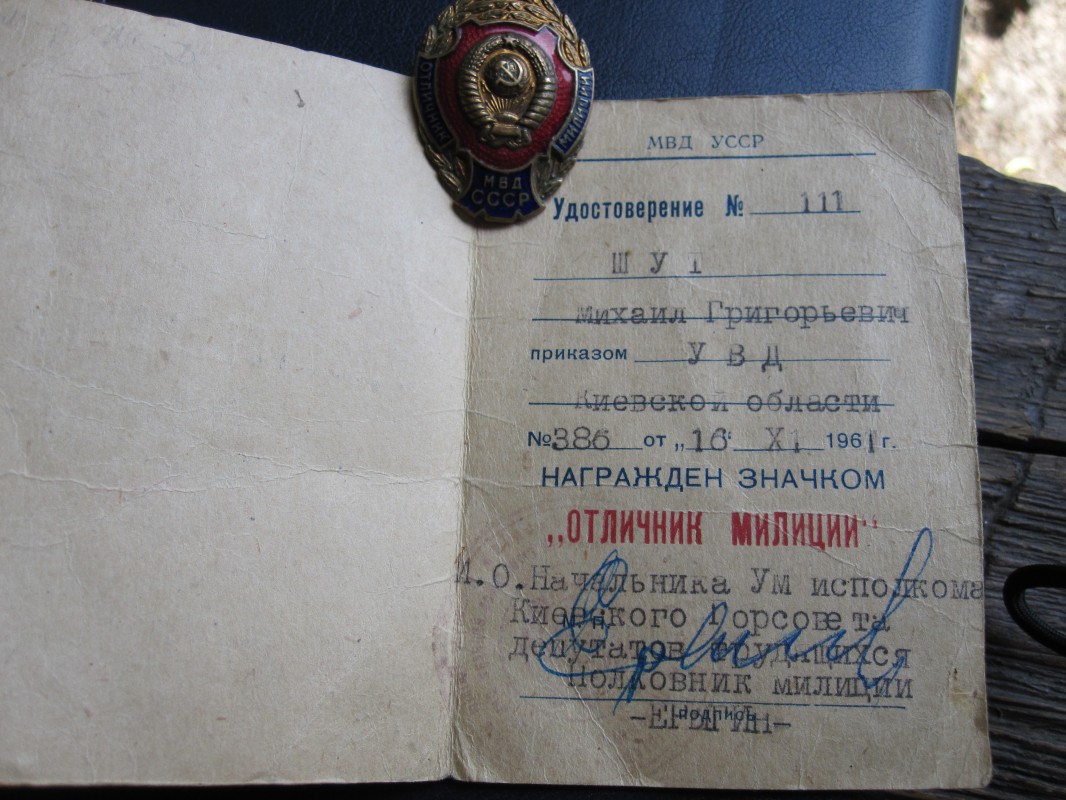 ОТЛИЧНИК МИЛИЦИИ
МВД
СССР
МВД УССР
Удостоверение № 111
ШУТ
Михаил Григорьевич
приказом УВД
Киевской области
№386 от „16" XI 1961 г.
НАГРАЖДЕН ЗНАЧКОМ
„ОТЛИЧНИК МИЛИЦИИ"
И.О.Начальника Ум исполкома
Киевского Горсовета
депутатов трудящихся
полковник милиции
подпись